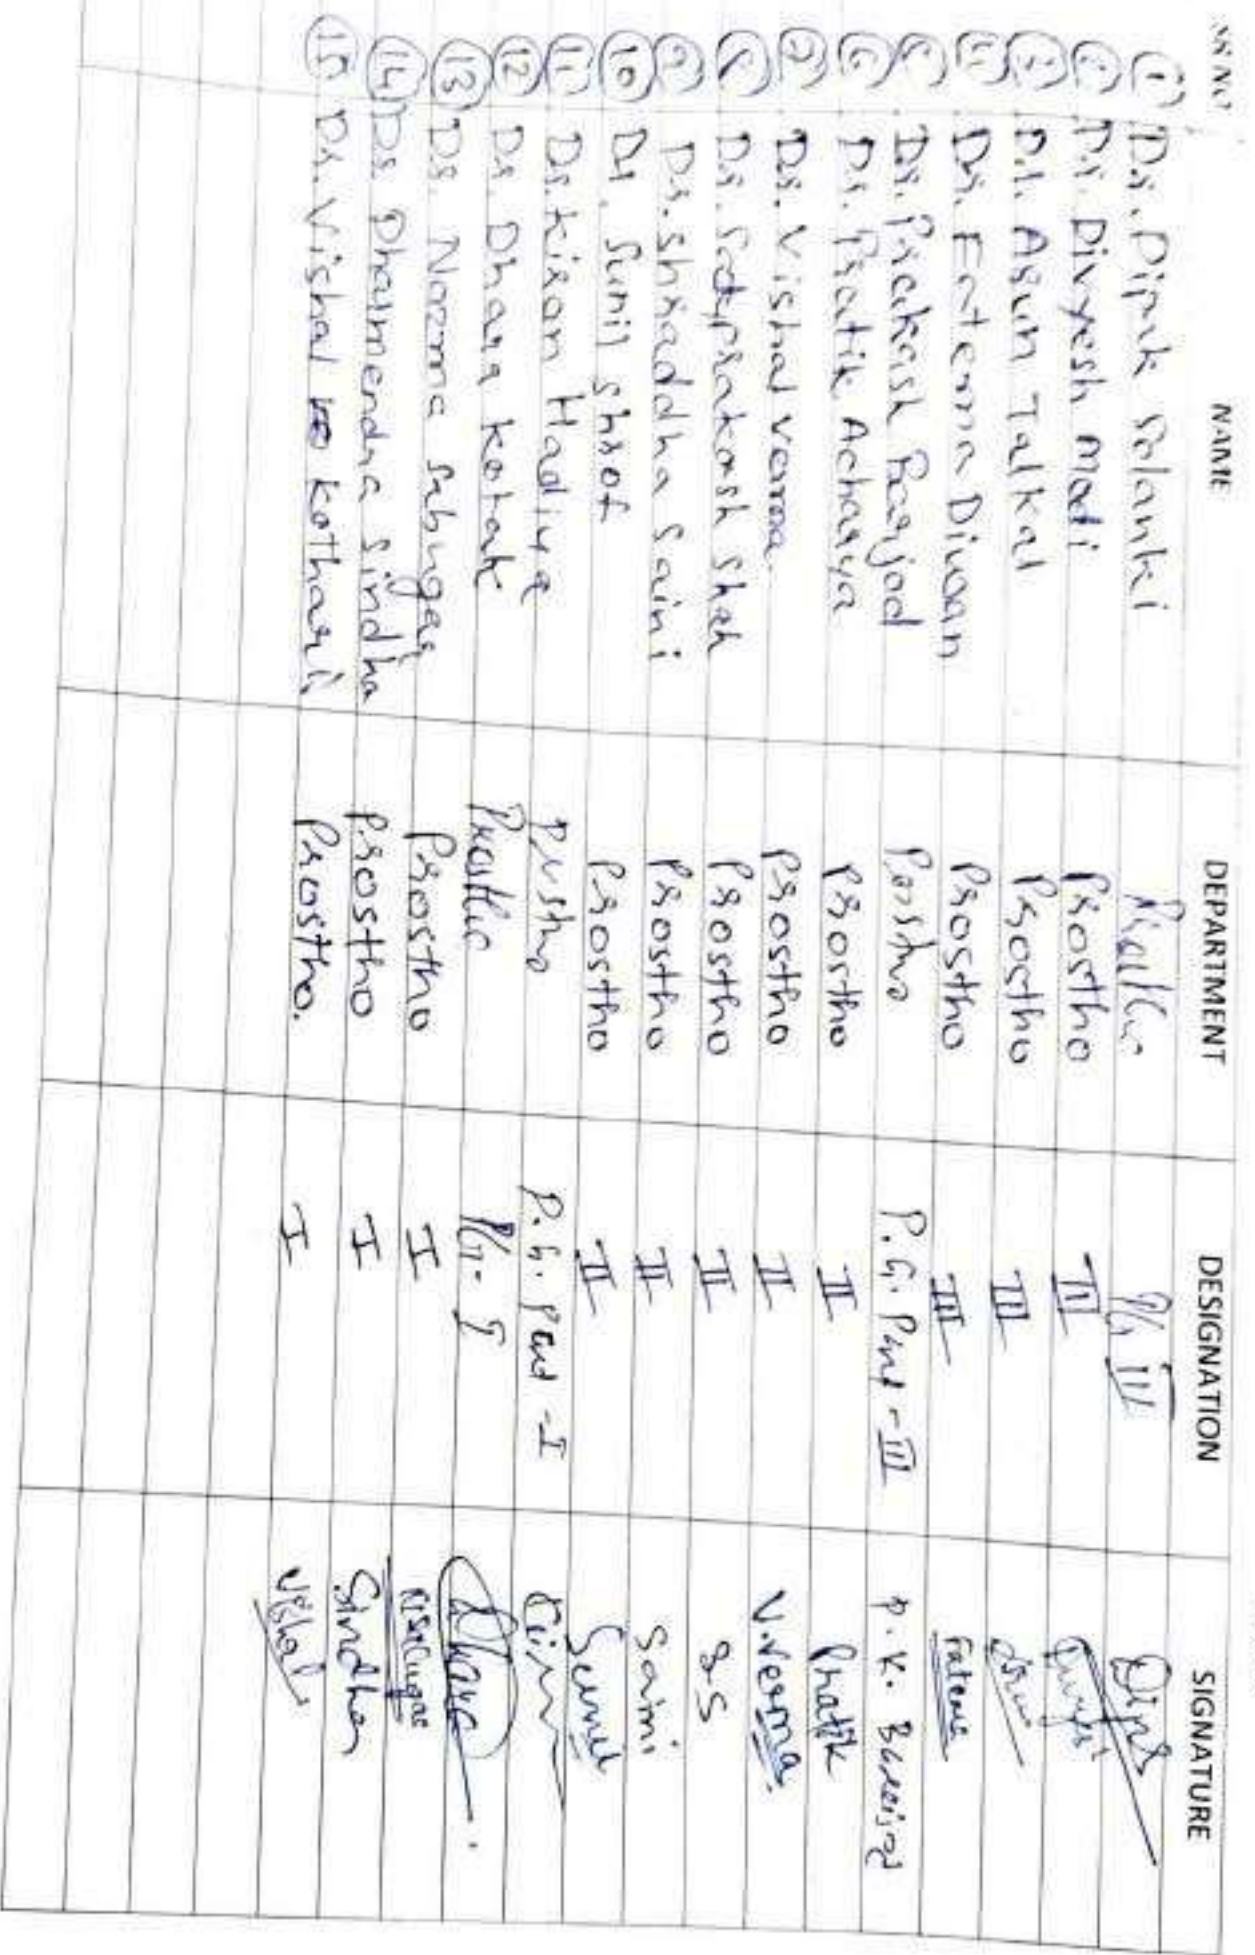 SR NO NAME DEPARTMENT DESIGNATION SIGNATURE
1 Dr. Dipak Solanki Prostho PG III Dips
2 Dr. Divyesh Modi Prostho III
3 Dr. Arun Talkal Prostho III
4 Dr. Fatema Diwan Prostho III Fatema
5 Dr. Prakash Barjod Prostho P.G. Part - III P. K.
6 Dr. Pratik Acharya Prostho II Pratik
7 Dr. Vishal Verma Prostho II V.Verma
8 Dr. Satyprakash Shah Prostho II S.S
9 Dr. Shraddha Saini Prostho II Saini
10 Dr. Sunil Shrof Prostho II Sunil
11 Dr. Kiran Hadiya Prostho P.G. Part - I
12 Dr. Dhara Kotak Prostho PG - I Dhara
13 Dr. Nazma Prostho I
14 Dr. Dharmendra Sindha Prostho I Sindha
15 Dr. Vishal Kothari Prostho. I Vishal